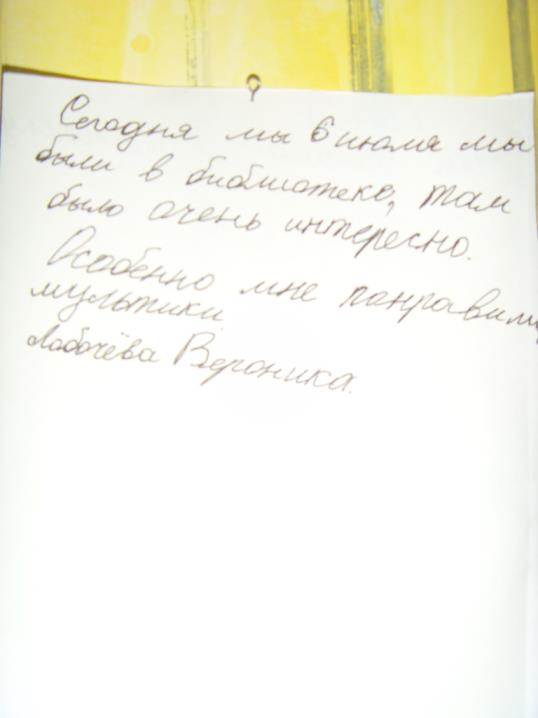 Сегодня мы 6 июля мы
были в библиотеке, там
было очень интересно.
Особенно мне понравили
мультики
Лобочёва Вероника.